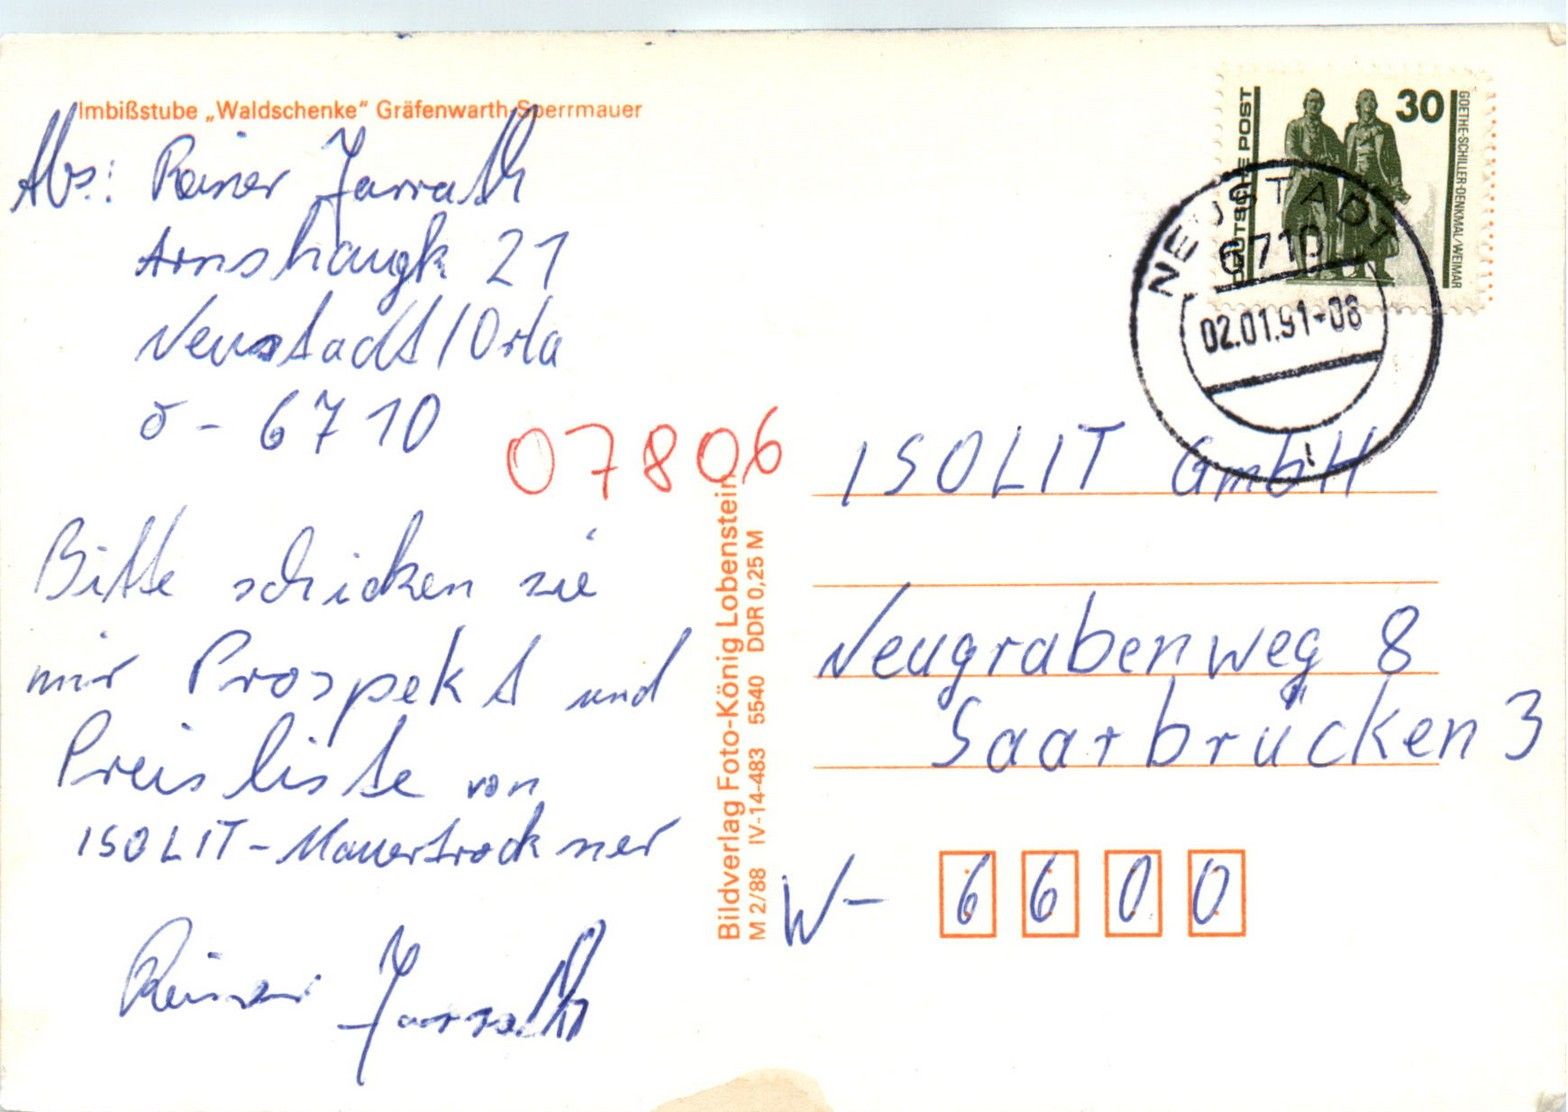 Imbißstube „Waldschenke“ Gräfenwarth-Sperrmauer
Abs.: Rainer Jarrath
Arnshaugk 21
Neustadt/Orla
O - 6710
07806
Bitte schicken sie
mir Prospekt und
Preisliste von
ISOLIT-Mauertrockner
Rainer Jarrath
Bildverlag Foto-König Lobenstein
M 2/88 IV-14-483 5540 DDR 0,25 M
DEUTSCHE POST
30
GOETHE-SCHILLER-DENKMAL/WEIMAR
NEUSTADT
6710
02.01.91-08
ISOLIT GmbH
Neugrabenweg 8
Saarbrücken 3
W- 6600